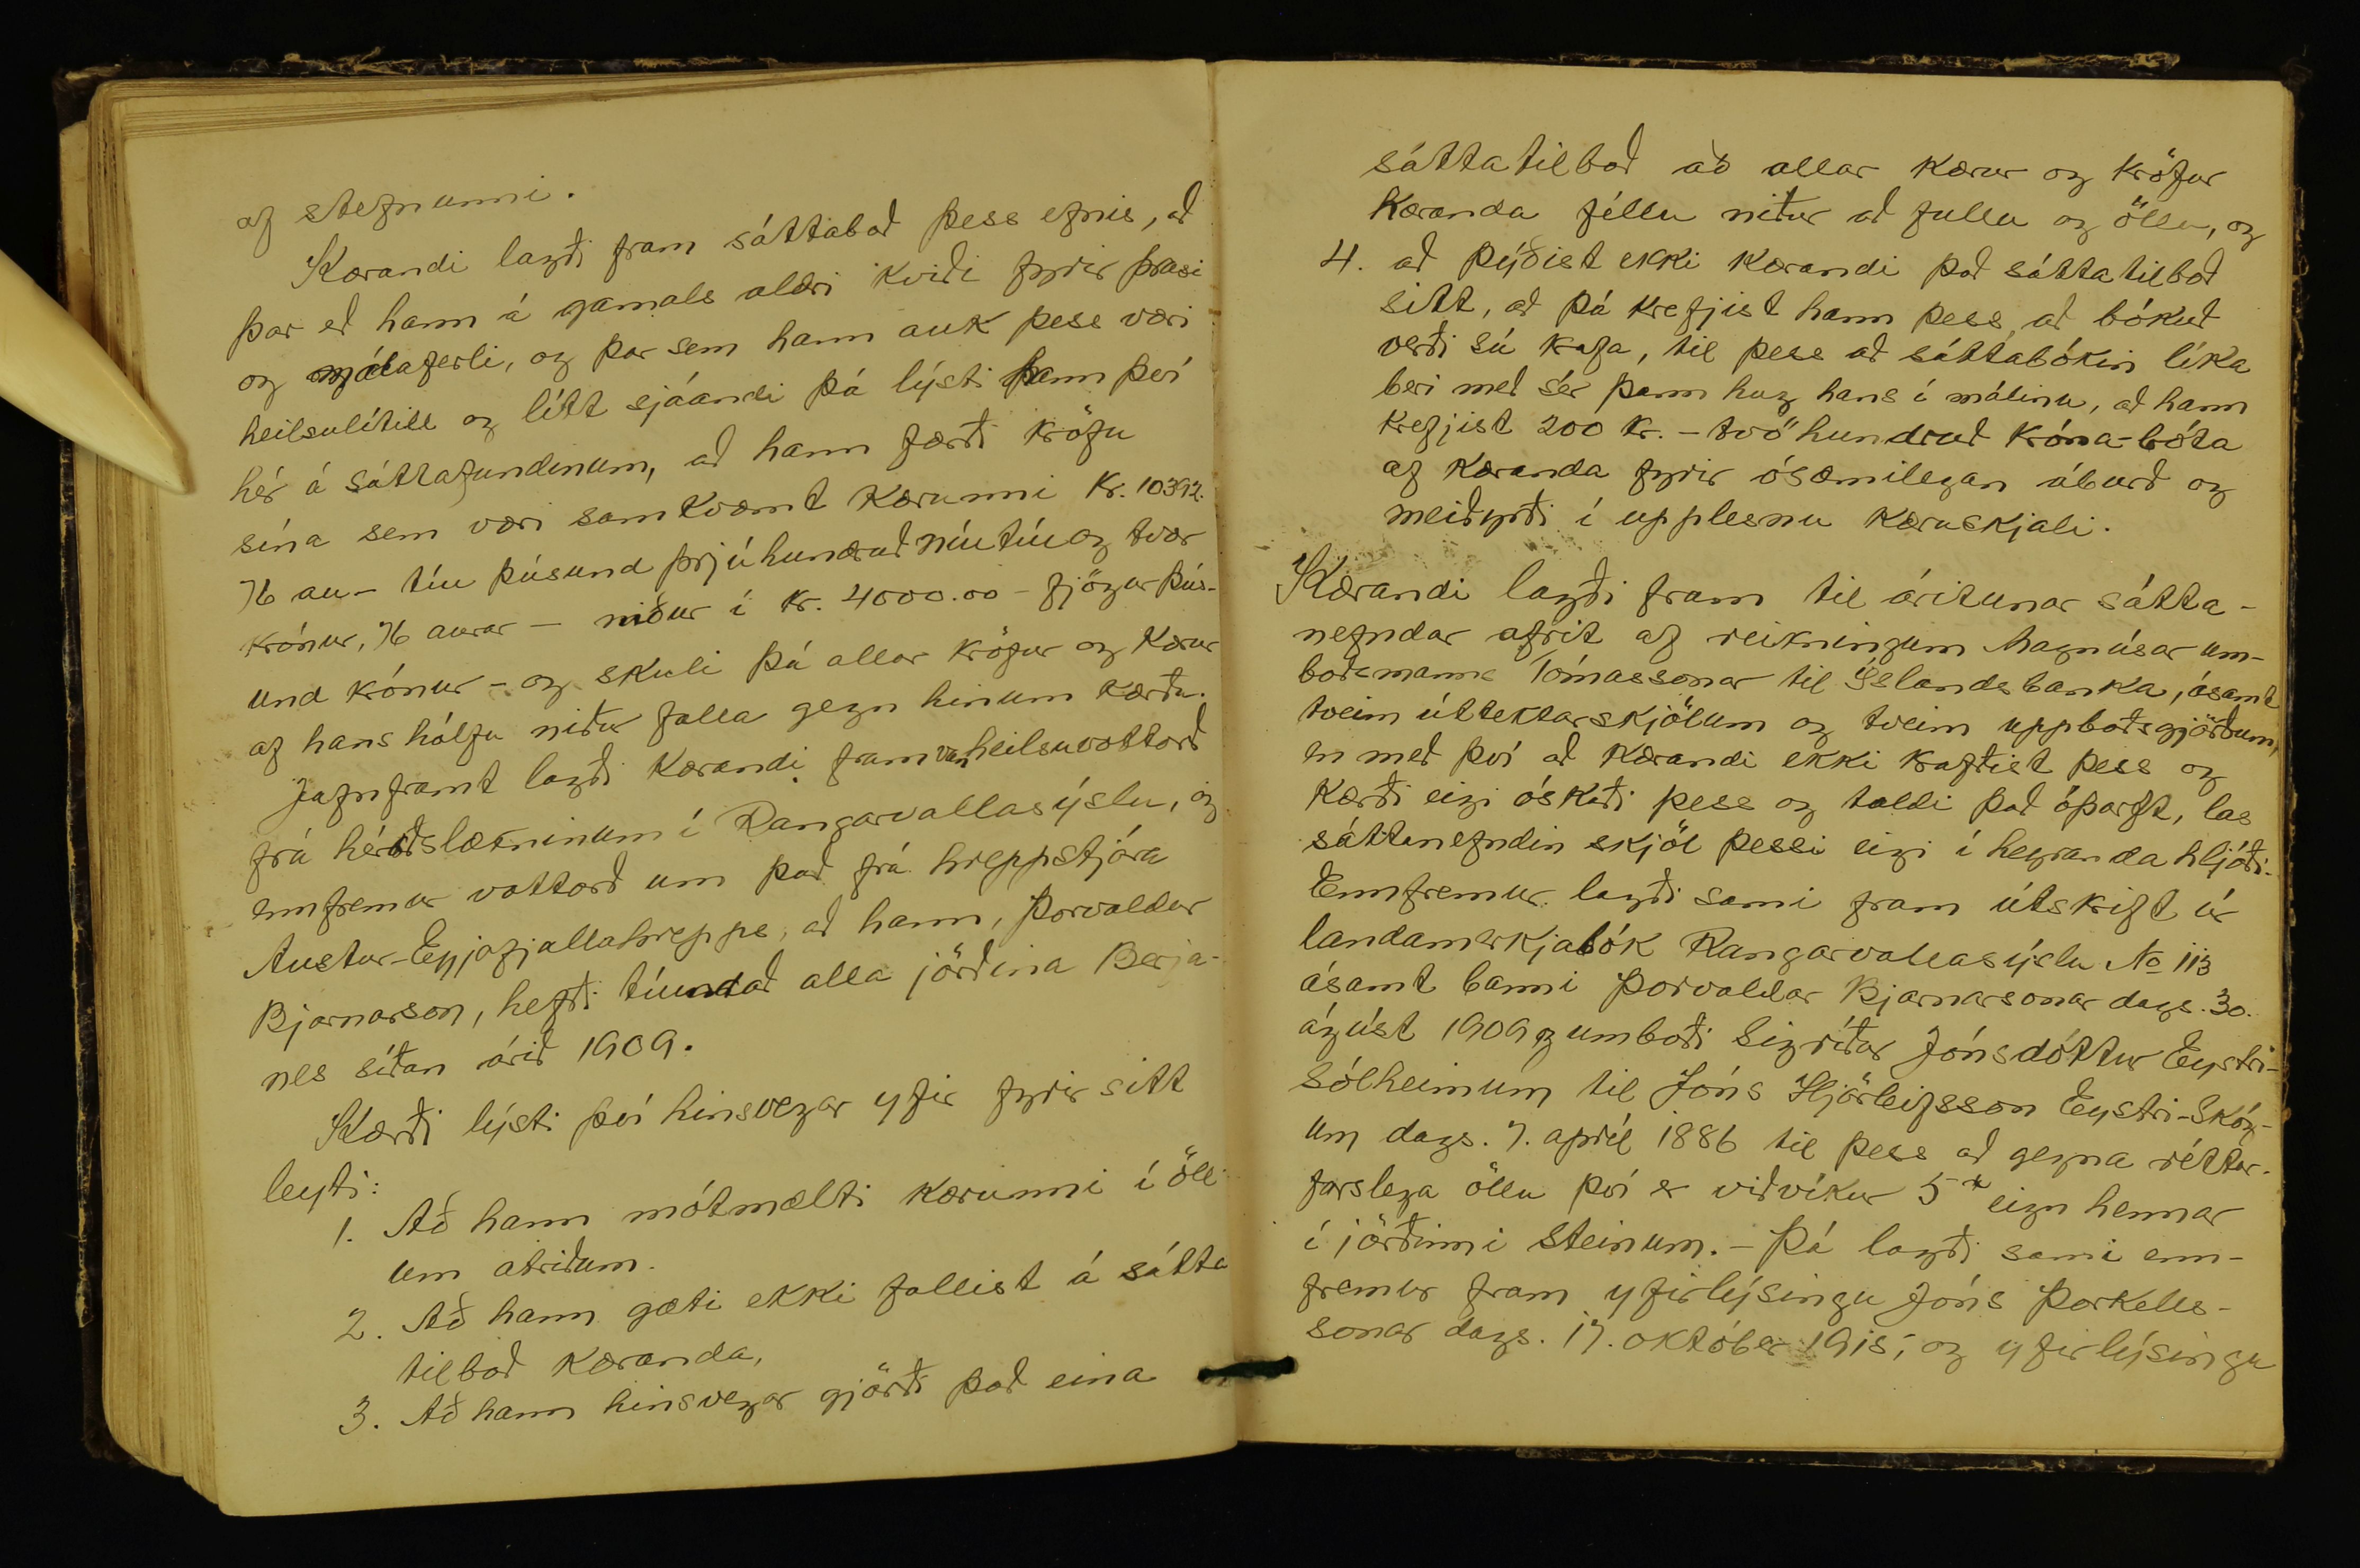 af stefnunni.
Kærandi lagði fram sáttaboð þess efnis, að
þar eð hann á gamals aldri kviði fyrir þrasi
og málaferli, og þar sem hann auk þess væri
heilsulítill og lítt sjáandi þá lýsti hann því
hér á sáttafundinum, að hann færði kröfu
sína sem væri samkvæmt kærunni kr. 10392.
76 au - tíu þúsund þrjú hundruð níutíu og tvær
krónur, 76 aurar - niður í kr. 4000.00 - fjögur þús-
und krónur - og skuli þá allar kröfur og kærur
af hans hálfu niður falla gegn hinum kærða.
Jafnframt lagði kærandi fram vanheilsuvottorð
frá héraðslækninum í Rangarvallasýslu, og
ennfremur vottorð um það frá hreppstjóra
Austur-Eyjafjallahrepps, að hann, Þorvaldur
Bjarnarson, hefði tíundað alla jörðina Berja-
nes síðan árið 1909.
Kærði lýsti því hinsvegar yfir fyrir sitt
leyti:
1. Að hann mótmælti kærunni í öll-
um atriðum.
2. Að hann gæti ekki fallist á sátta
tilboð kæranda,
3. Að hann hinsvegar gjörði það eina
sáttatilboð að allar kærur og kröfur
kæranda féllu niður að fullu og öllu, og
4. að þýðist ekki kærandi það sáttatilboð
sitt, að þá krefjist hann þess, að bókuð
verði sú krafa, til þess að sáttabókin líka
beri með sér þann hug hans í málinu, að hann
krefjist 200 kr. - tvö hundruð króna - bóta
af kæranda fyrir ósæmilegan áburð og
meiðyrði í upplesnu kæruskjali.
Kærandi lagði fram til áritunar sátta-
nefndar afrit af reikningum Magnúsar um-
boðsmanns Tómassonar til Íslandsbanka, ásamt
tveim úttektarskjölum og tveim uppboðsgjörðum,
en með því að kærandi ekki krafðist þess og
kærði eigi óskaði þess og taldi það óþarft, las
sáttanefndin skjöl þessi eigi í heyranda hljóði.
Ennfremur lagði sami fram útskrift úr
landamerkjabók Rangarvallasýslu No 113
ásamt banni Þorvaldar Bjarnarsonar dags. 30.
ágúst 1909 og umboði Sigríðar Jónsdóttur Eystri-
Sólheimum til Jóns Hjörleifsson Eystri-Skóg-
um dags. 7. apríl 1886 til þess að gegna réttar-
farslega öllu því er viðvíkur 5 eign hennar
í jörðinni Steinum. - Þá lagði sami enn-
fremur fram yfirlýsingu Jóns Þorkells-
sonar dags. 17. október 1915, og yfirlýsingu